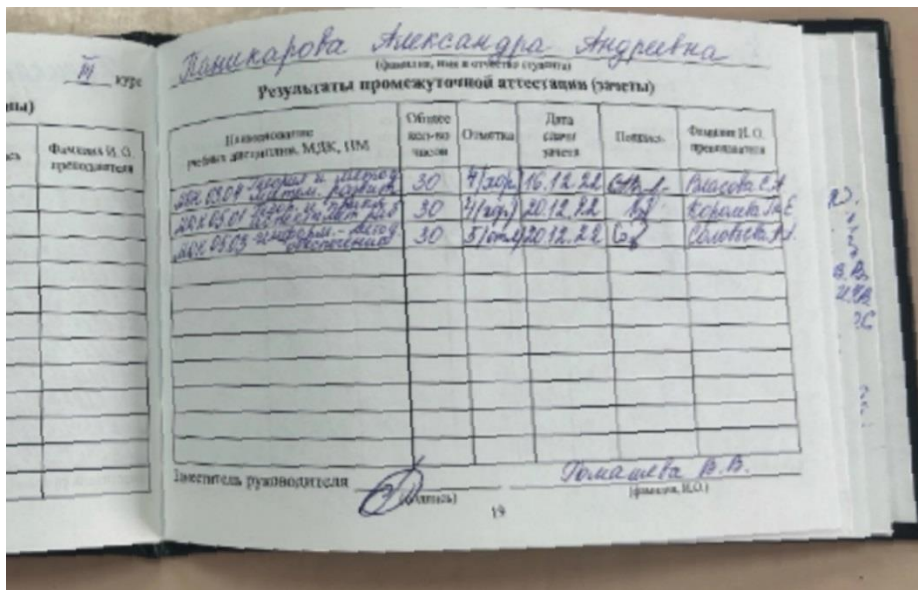 III курс
Паникарова Александра Андреевна
(фамилия, имя и отчество студента)
Результаты промежуточной аттестации (зачеты)
Фамилия И. О. преподавателя
Наименование учебных дисциплин, МДК, ПМ
Общее кол-во часов
Отметка
Дата сдачи зачета
Подпись
Фамилия И. О. преподавателя
МДК 03.04 Теория и метод. матем. развит. 30 4(хор) 16.12.22 Власова С.А
МДК 05.01 30 4(хор) 20.12.22 Королева
МДК 05.03 Информ.-метод обеспечение 30 5(отл) 20.12.22 Соловьева
Заместитель руководителя
(подпись)
Томашева В.В.
(фамилия, И.О.)
19